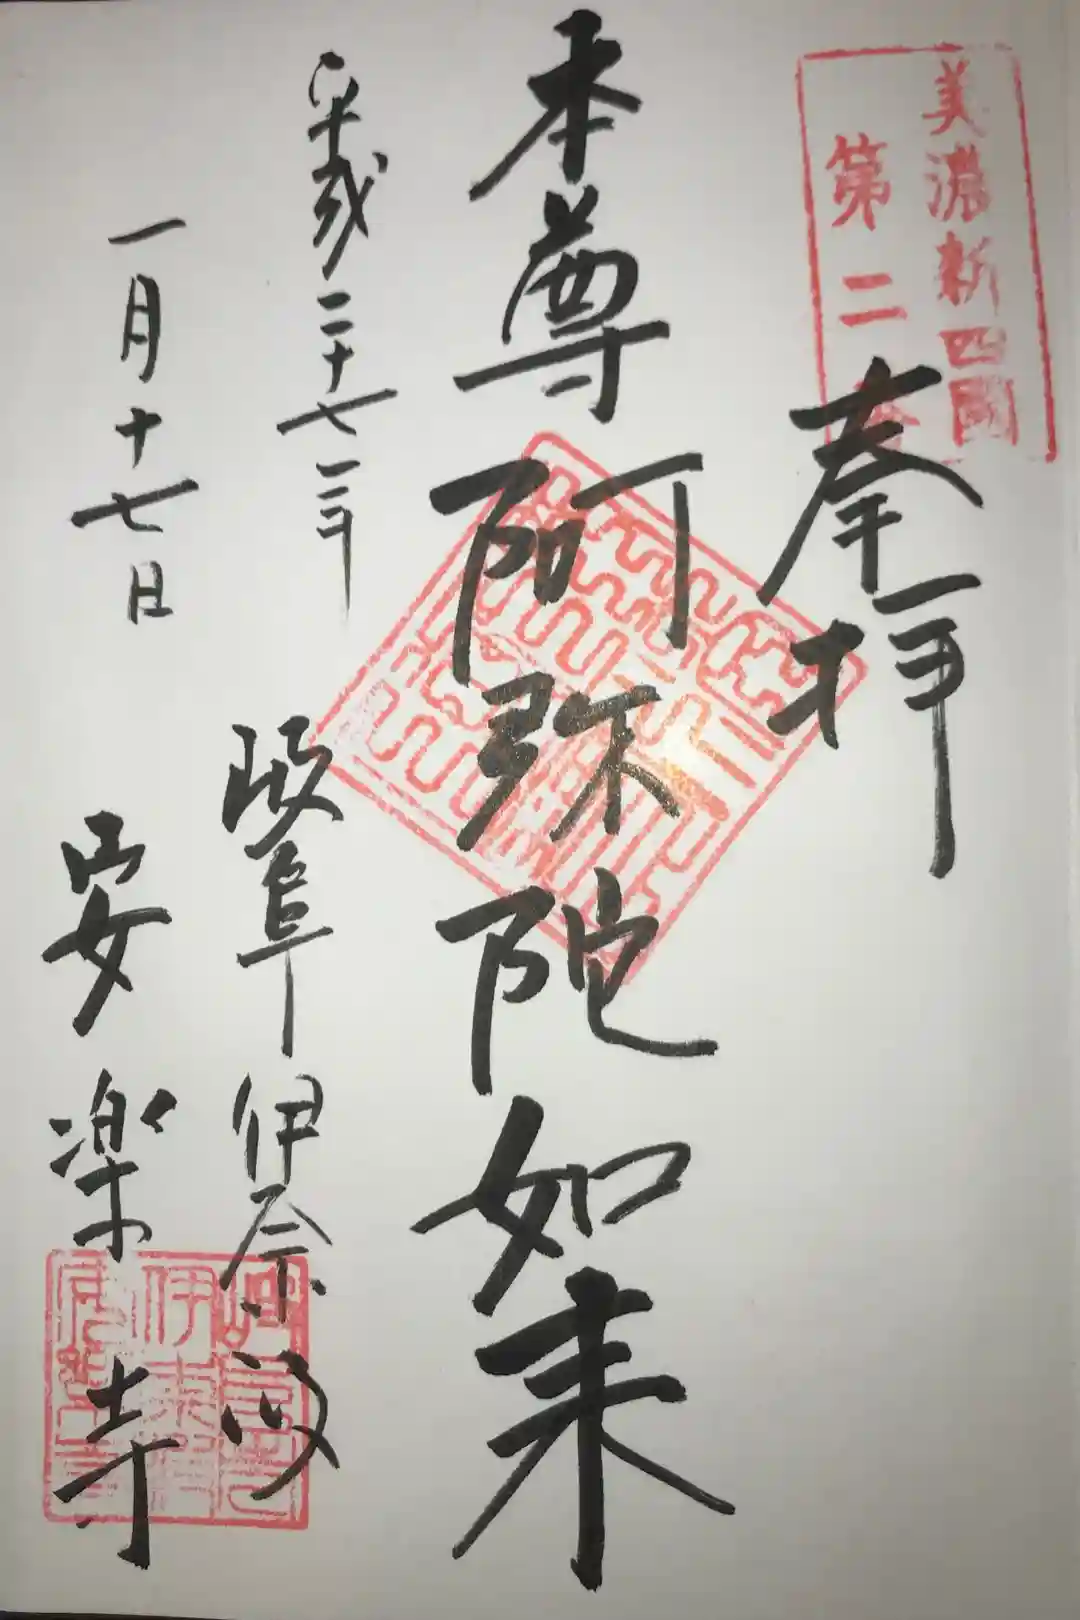 美濃新四國
第二番
奉拝
本尊阿弥陀如来
平成二十七年
一月十七日
岐阜伊奈波
安楽寺